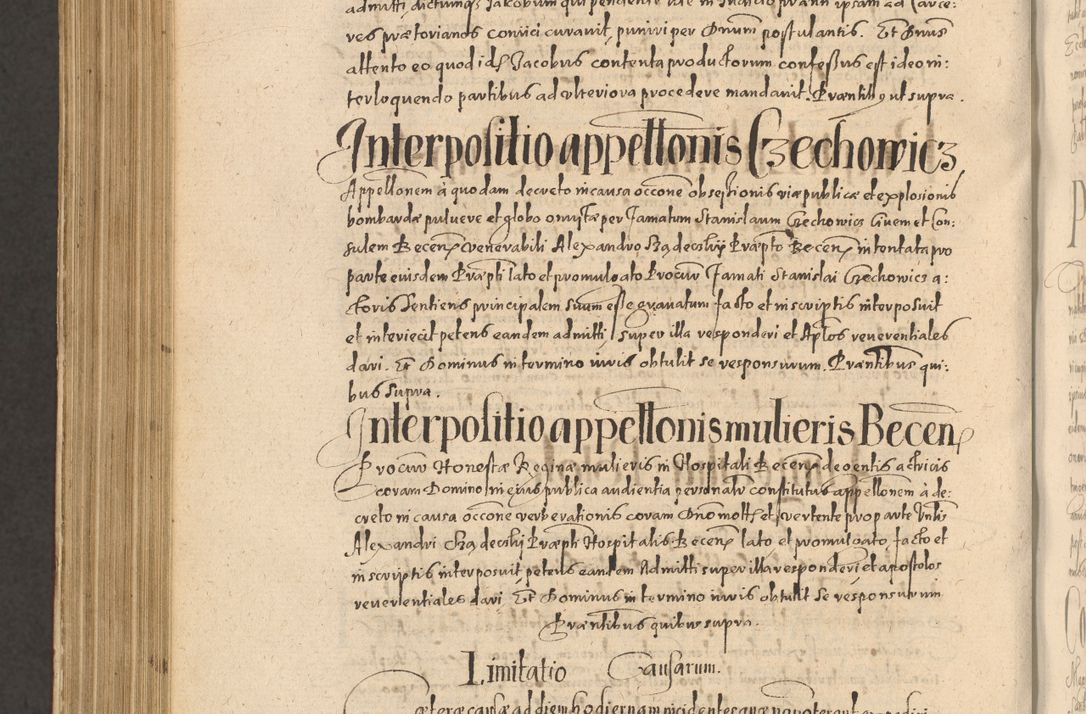 admitti, dictumq3 Jacobum qui pendente lite in Iudicio præmii ipsam ad Carce:
res prætorianos conijci curavit, puniri per Dnum postulantis. Et Dnus
attento eo quod id3 Jacobus contenta productorum confessus est ideo in:
terloquendo partibus ad ulteriora procedere mandavit. Præntib9 ut supra.
Interpositio appellonis Czechowicz
Appellonem à quodam decreto in causa occone obsessionis viæ publicæ et explosionis
bombardæ pulvere et globo onustæ per famatum Stanislaum Czechowicz Civem et Con:
sulem Becen. cvenerabili Alexandro Sządecskij Præpto Becen. intentata pro
parte eiusdem Præpti lato et promulgato Procur famati Stanislai Czechowicz a:
ctoris Sentiens principalem suum esse gravatum facto et in scriptis interposuit
et interiecit petens eandem admitti super illa responderi et Aplos reverentiales
dari. Et Dominus in termino iuris obtulit se responsurum. Præntibus qui:
bus supra.
Interpositio appellonis mulieris Becen.
Procur Honestæ Reginæ mulieris in Hospitali Becen. degentis actricis
coram Domino in eius publica audientia personalr constitutus appellonem à de:
creto in causa occone verberationis coram Dno mott. et vertente pro parte Vnlis
Alexandri Sządecskij Præpti Hospitalis Becen. lato et promulgato, facto et
in scriptis interposuit, petens eandem Admitti super illa responderi et apostolos
reverentiales dari. Et Dominus in termino iuris obtulit se responsurum
Præntibus quibus supra.
Limitatio Causarum.
Cæteræ causæ ad diem hodiernam incidentes quæ non poterant expediri